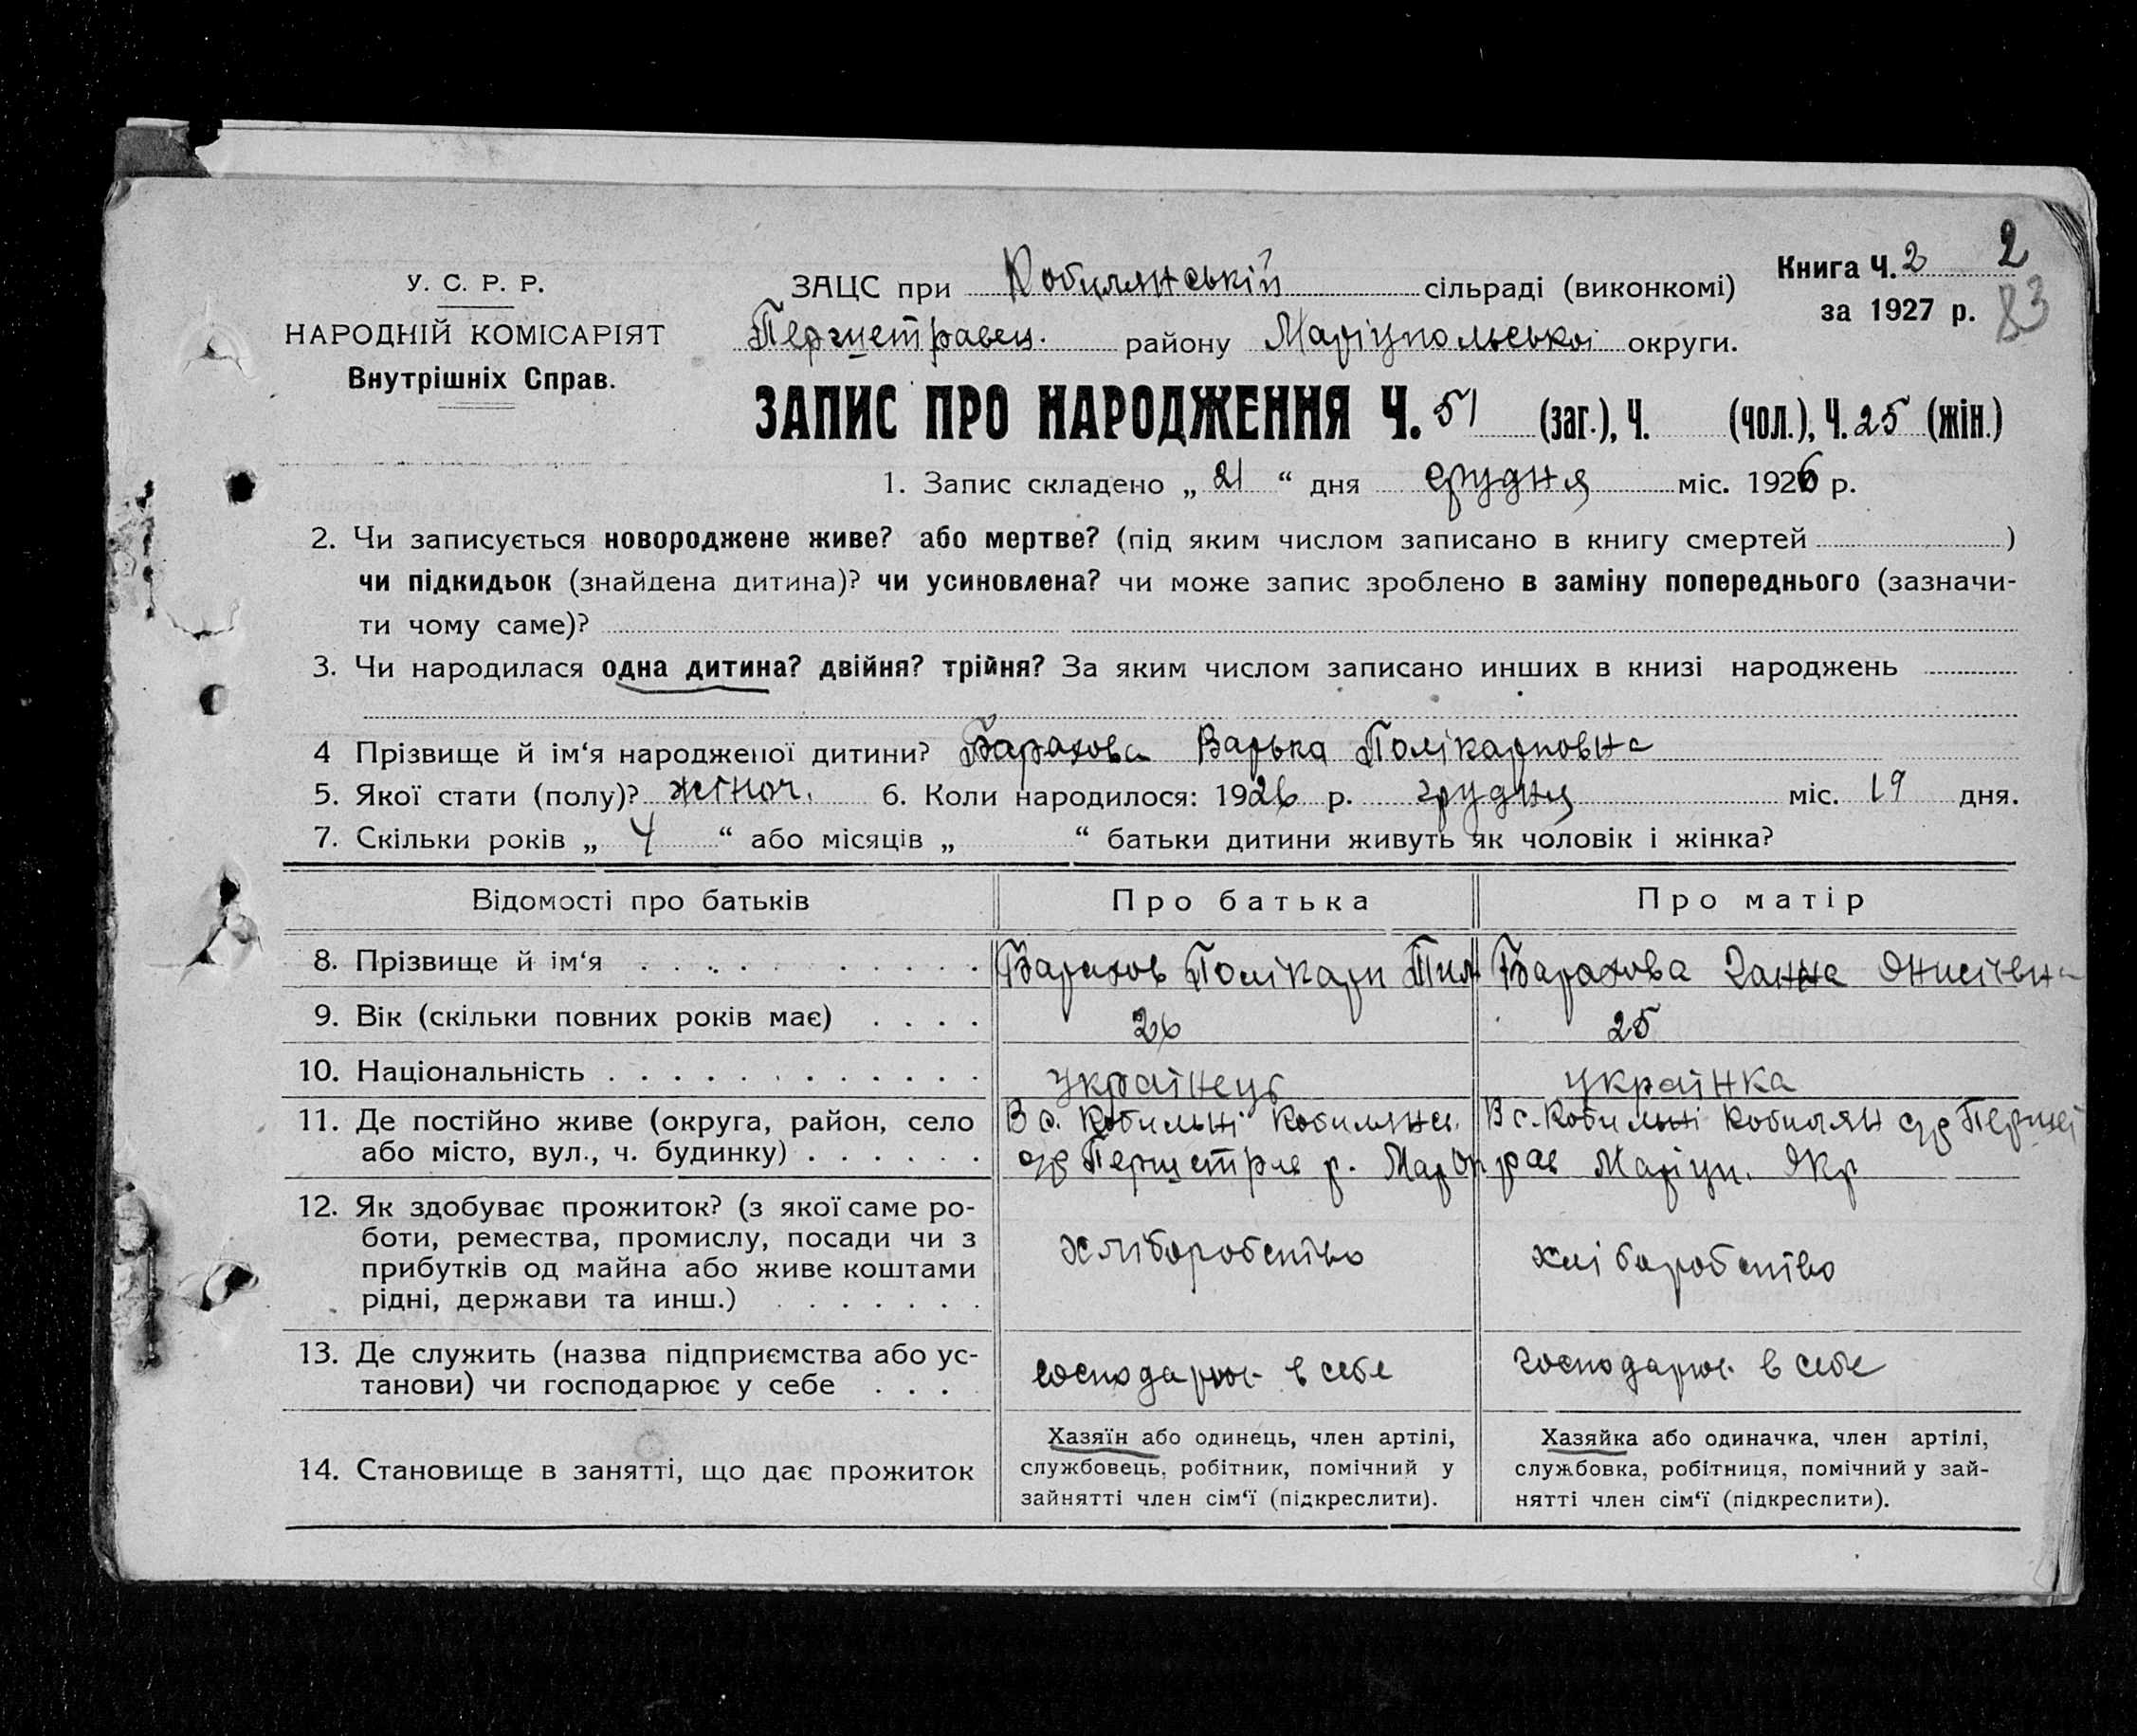 Книга Ч. 2 2
У. С. Р. Р. ЗАЦС при Кобилянській сільраді (виконкомі) за 1927 р. 83
НАРОДНІЙ КОМІСАРІЯТ Першетравен. району Маріупольської округи.
Внутрішніх Справ.
ЗАПИС ПРО НАРОДЖЕННЯ Ч. 51 (заг.), Ч. (чол.), Ч. 25 (жін.)
1. Запис складено „ 21 “ дня грудня міс. 1926 р.
2. Чи записується новороджене живе? або мертве? (під яким числом записано в книгу смертей )
чи підкидьок (знайдена дитина)? чи усиновлена? чи може запис зроблено в заміну попереднього (зазначи-
ти чому саме)?
3. Чи народилася одна дитина? двійня? трійня? За яким числом записано инших в книзі народжень
4 Прізвище й ім‘я народженої дитини? Барахова Варька Полікарповна
5. Якої стати (полу)? жіноч. 6. Коли народилося: 1926 р. грудня міс. 19 дня.
7. Скільки років „ 4 “ або місяців „ “ батьки дитини живуть як чоловік і жінка?
Відомості про батьків Про батька Про матір
8. Прізвище й ім‘я . . . . . . . . . . Барахов Полікарп Барахова Ганна Онисівна
9. Вік (скільки повних років має) . . . . 26 25
10. Національність . . . . . . . . . . . . українець українка
11. Де постійно живе (округа, район, село В с. Кобильні Кобилянс. В с. Кобильні Кобилян с/р Першет
або місто, вул., ч. будинку) . . . . . . с/р Першетрав р. Мар Окр рав Маріуп. Окр
12. Як здобуває прожиток? (з якої саме ро-
боти, ремества, промислу, посади чи з хліборобство хліборобство
прибутків од майна або живе коштами
рідні, держави та инш.) . . . . . . .
13. Де служить (назва підприємства або ус-
танови) чи господарює у себе . . . господарює в себе господарює в себе
14. Становище в занятті, що дає прожиток
Хазяїн або одинець, член артілі,
службовець, робітник, помічний у
зайнятті член сім‘ї (підкреслити).
Хазяйка або одиначка, член артілі,
службовка, робітниця, помічний у зай-
нятті член сім‘ї (підкреслити).